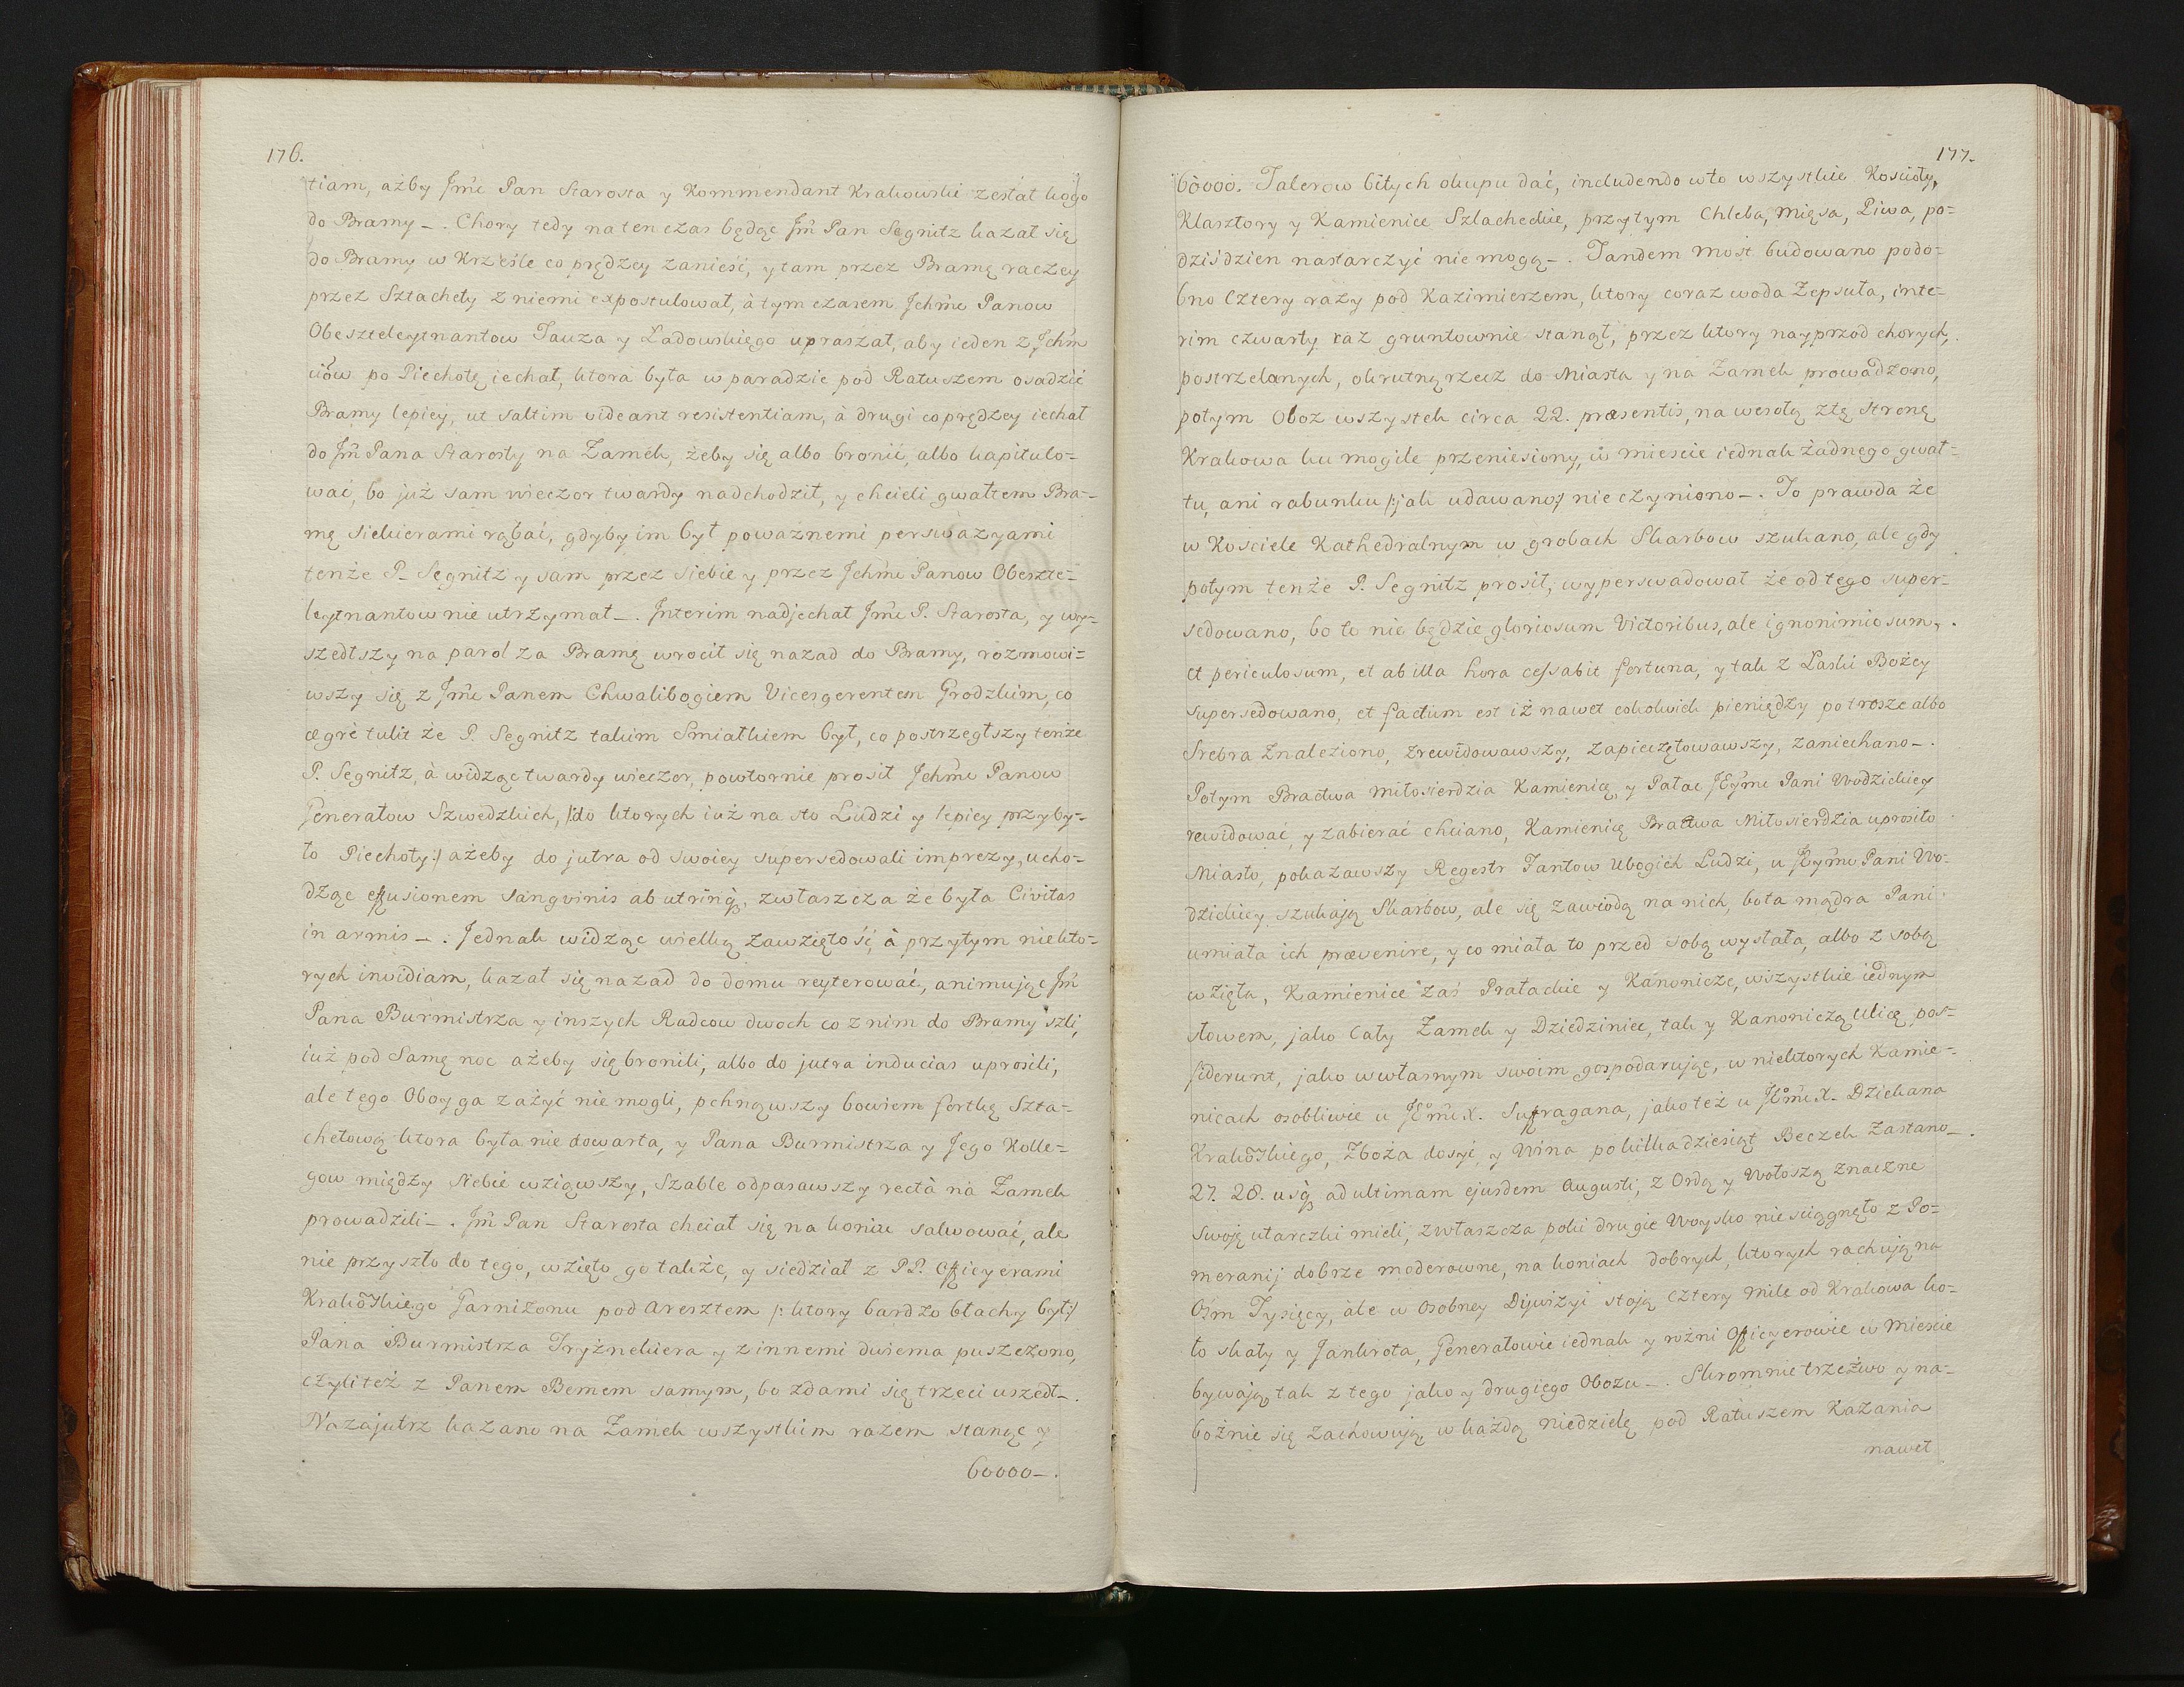 176.
tiam, ażby Jmć Pan Starosta y Kommendant Krakowski zesłał kogo
do Bramy _. Chory tedy na ten czas będąc Jm̃ Pan Segnitz kazał się
do Bramy w Krześle co prędzey zanieść, y tam przez Bramę raczey
przez Sztachety z niemi expostulował, à tym czasem Jchmć Panow
Obeszteleytnantow Tauza y Ladowskiego upraszał, aby ieden z Jchm̃
ciow po Piechotę iechał, ktora była w paradzie pod Ratuszem osadzić
Bramy lepiey, ut saltim videant resistentiam, à drugi co prędzey iechał
do Jm̃ Pana Starosty na Zamek, żeby się albo bronić, albo kapitulo=
wać, bo już sam wieczor twardy nadchodził, y chcieli gwałtem Bra=
mę siekierami rąbać, gdyby im był poważnemi perswazyami
tenże P. Segnitz y sam przez siebie y przez Jchmć Panow Obeszte=
leytnantow nie utrzymał _. Interim nadjechał Jmć P. Starosta, y wy=
szedłszy na parol za Bramę wrocił się nazad do Bramy, rozmowi=
wszy się z Jmć Panem Chwalibogiem Vicesgerentem Grodzkim, co
ægrè tulit że P. Segnitz takim Smiałkiem był, co postrzegłszy tenże
P. Segnitz, à widząc twardy wieczor, powtornie prosił Jchmć Panow
Generałow Szwedzkich, /:do ktorych iuż na sto Ludzi y lepiey przyby=
ło Piechoty:/ ażeby do jutra od swoiey supersedowali imprezy, ucho=
dząc effusionem sangvinis ab utrinq₃, zwłaszcza że była Civitas
in armis _. Jednak widząc wielką zawziętość, à przytym niekto=
rych invidiam, kazał się nazad do domu reyterować, animując Jm̃
Pana Burmistrza y inszych Radcow dwoch co z nim do Bramy szli,
iuż pod Samę noc ażeby się bronili, albo do jutra inducias uprosili,
ale tego Oboyga zażyć nie mogli, pchnąwszy bowiem fortkę Szta=
chetową ktora była nie dowarta, y Pana Burmistrza y Jego Kolle=
gow między Siebie wziąwszy, Szable odpasawszy rectà na Zamek
prowadzili _. Jm̃ Pan Starosta chciał się na koniu salwować, ale
nie przyszło do tego, wzięto go także, y siedział z PP. Officyerami
Krakõskiego Garnizonu pod Aresztem /: ktory bardzo błachy był:/
Pana Burmistrza Fryznekiera y z innemi dwiema puszczono,
czyliteż z Panem Bemem samym, bo zdami się trzeci uszedł _.
Nazajutrz kazano na Zamek wszystkim razem stanąć y
60000 _.
177.
60000. Talerow bitych okupu dać, includendo w to wszystkie Kościoły,
Klasztory y Kamienice Szlacheckie, przytym Chleba, Mięsa, Piwa, po=
dziśdzien nastarczyć nie mogą _. Tandem Most budowano podo=
bno cztery razy pod Kazimierzem, ktory coraz woda zepsuła, inte=
rim czwarty raz gruntownie stanął, przez ktory nayprzod chorych,
postrzelanych, okrutną rzecz do Miasta y na Zamek prowadzono,
potym Oboz wszystek circa 22. præsentis, na wesołą z tę stronę
Krakowa ku mogile przeniesiony, w mieście iednak żadnego gwał=
tu, ani rabunku /:jak udawano:/ nie czyniono _. To prawda że
w Kościele Kathedralnym w grobach Skarbow szukano, ale gdy
potym tenże P. Segnitz prosił, wyperswadował że od tego super=
sedowano, bo to nie będzie gloriosum Victoribus, ale ignonimiosum,
et periculosum, et ab illa hora cessabit fortuna, y tak z Łaski Bożey
supersedowano, et factum est iż nawet cokolwiek pieniędzy po trosze albo
Srebra znaleziono, zrewidowawszy, zapieczętowawszy, zaniechano _.
Potym Bractwa Miłosierdzia Kamienicę, y Pałac JEymć Pani Wodzickiey
rewidować, y zabierać chciano, Kamienicę Bractwa Miłosierdzia uprosiło
Miasto, pokazawszy Regestr Fantow Ubogich Ludzi, u JEymć Pani Wo=
dzickiey szukają Skarbow, ale się zawiodą na nich, bo ta mądra Pani
umiała ich prævenire, y co miała to przed sobą wysłała, albo z sobą
wzięła, Kamienice zaś Prałackie y Kanonicze, wszystkie iednym
słowem, jako Cały Zamek y Dziedziniec, tak y Kanoniczą Ulicę pos=
siderunt, jako w własnym swoim gospodarując, w niektorych Kamie=
nicach osobliwie u JEm̃ć X. Suffragana, jako też u JEm̃ć X. Dziekana
Krakõskiego, Zboża dosyć, y Wina po kilkadziesiąt Beczek zastano _.
27. 28. usq₃ ad ultimam ejusdem Augusti, z Ordą y Wołoszą znaczne
swoję utarczki mieli, zwłaszcza poki drugie Woysko nie sciągnęło z Po=
meranij dobrze moderowne, na koniach dobrych, ktorych rachują na
Ośm Tysięcy, ale w Osobney Dywizyi stoją cztery mile od Krakowa ko=
ło skały y Jankrota, Generałowie iednak y rożni Officyerowie w Mieście
bywają tak z tego jako y drugiego Obozu _. Skromnie trzeźwo y na=
bożnie się zachowują w każdą niedzielę pod Ratuszem Kazania
nawet